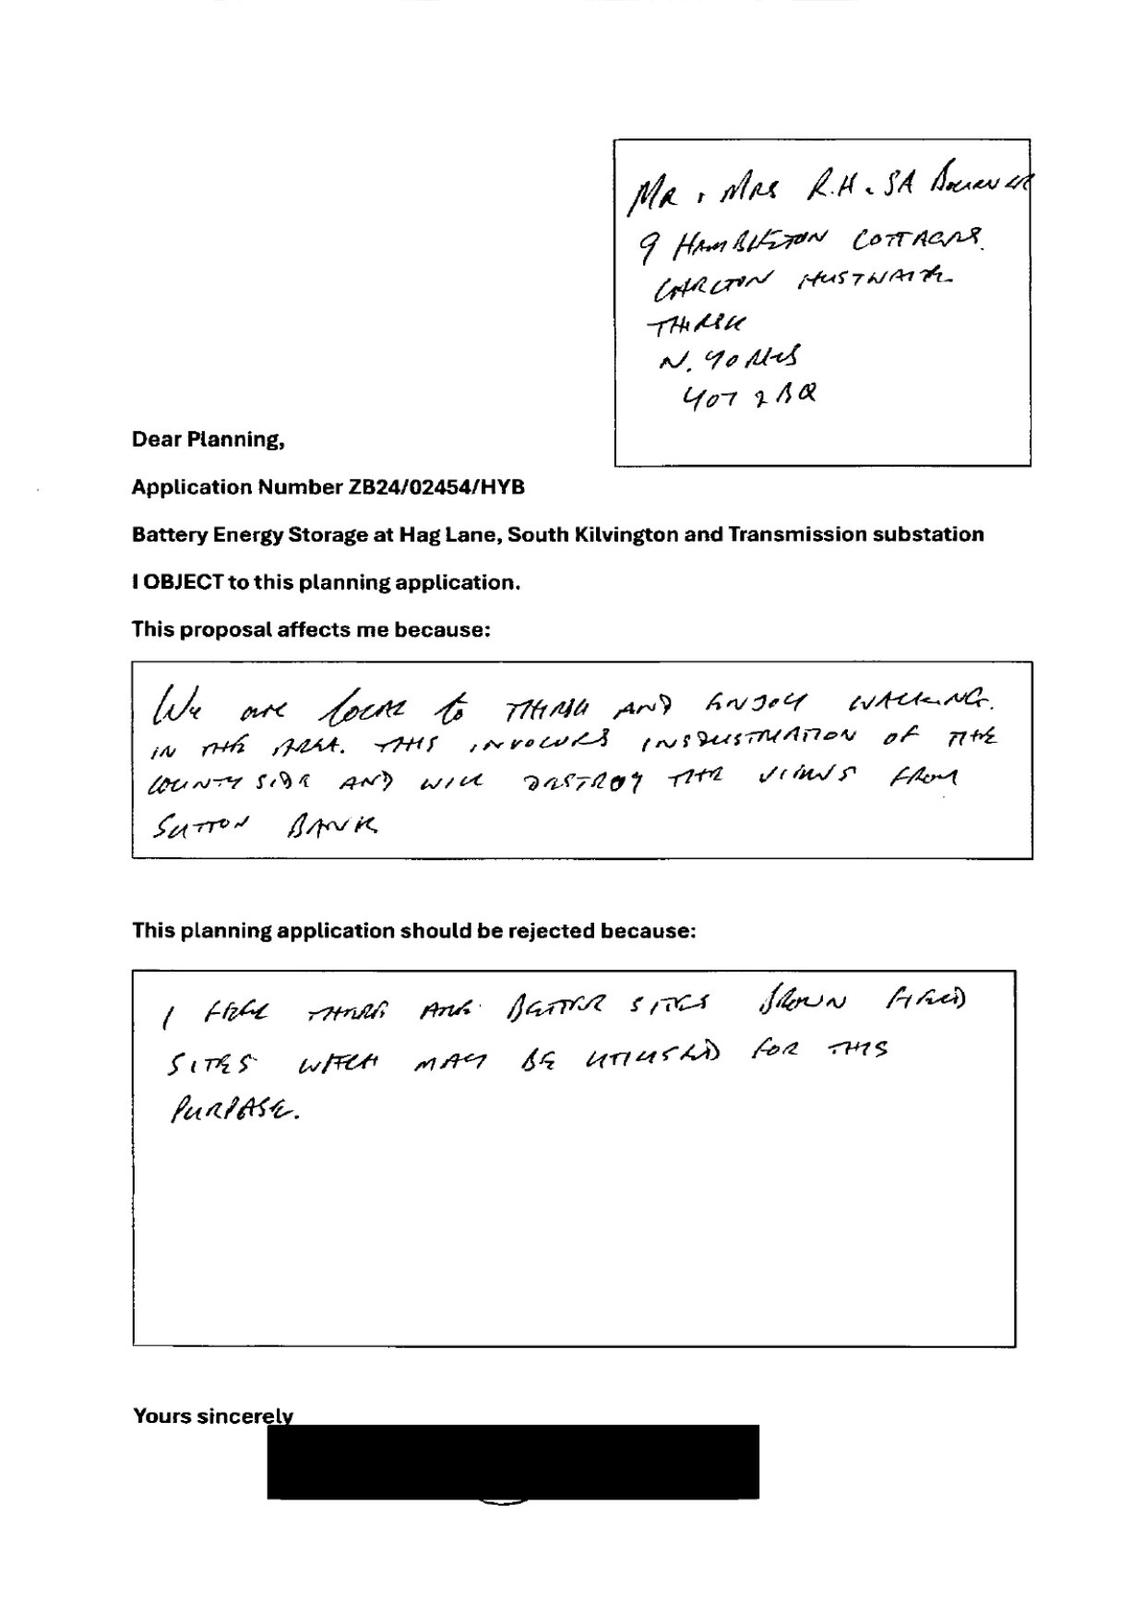 Mr & Mrs R.H & SA
9 HAMBLETON COTTAGES.
CARLTON HUSTWAITE
THIRSK
N. YORKS
YO7 2BQ
Dear Planning,
Application Number ZB24/02454/HYB
Battery Energy Storage at Hag Lane, South Kilvington and Transmission substation
I OBJECT to this planning application.
This proposal affects me because:
We are local to THIRSK AND ENJOY WALKING.
IN THE AREA. THIS INVOLVES INSDUSTRIATION OF THE
COUNTYSIDE AND WILL DESTROY THE VIEWS FROM
SUTTON BANK
This planning application should be rejected because:
I FEEL THERE ARE BETTER SITES BROWN FIELD
SITES WHICH MAY BE UTILISED FOR THIS
PURPASE.
Yours sincerely